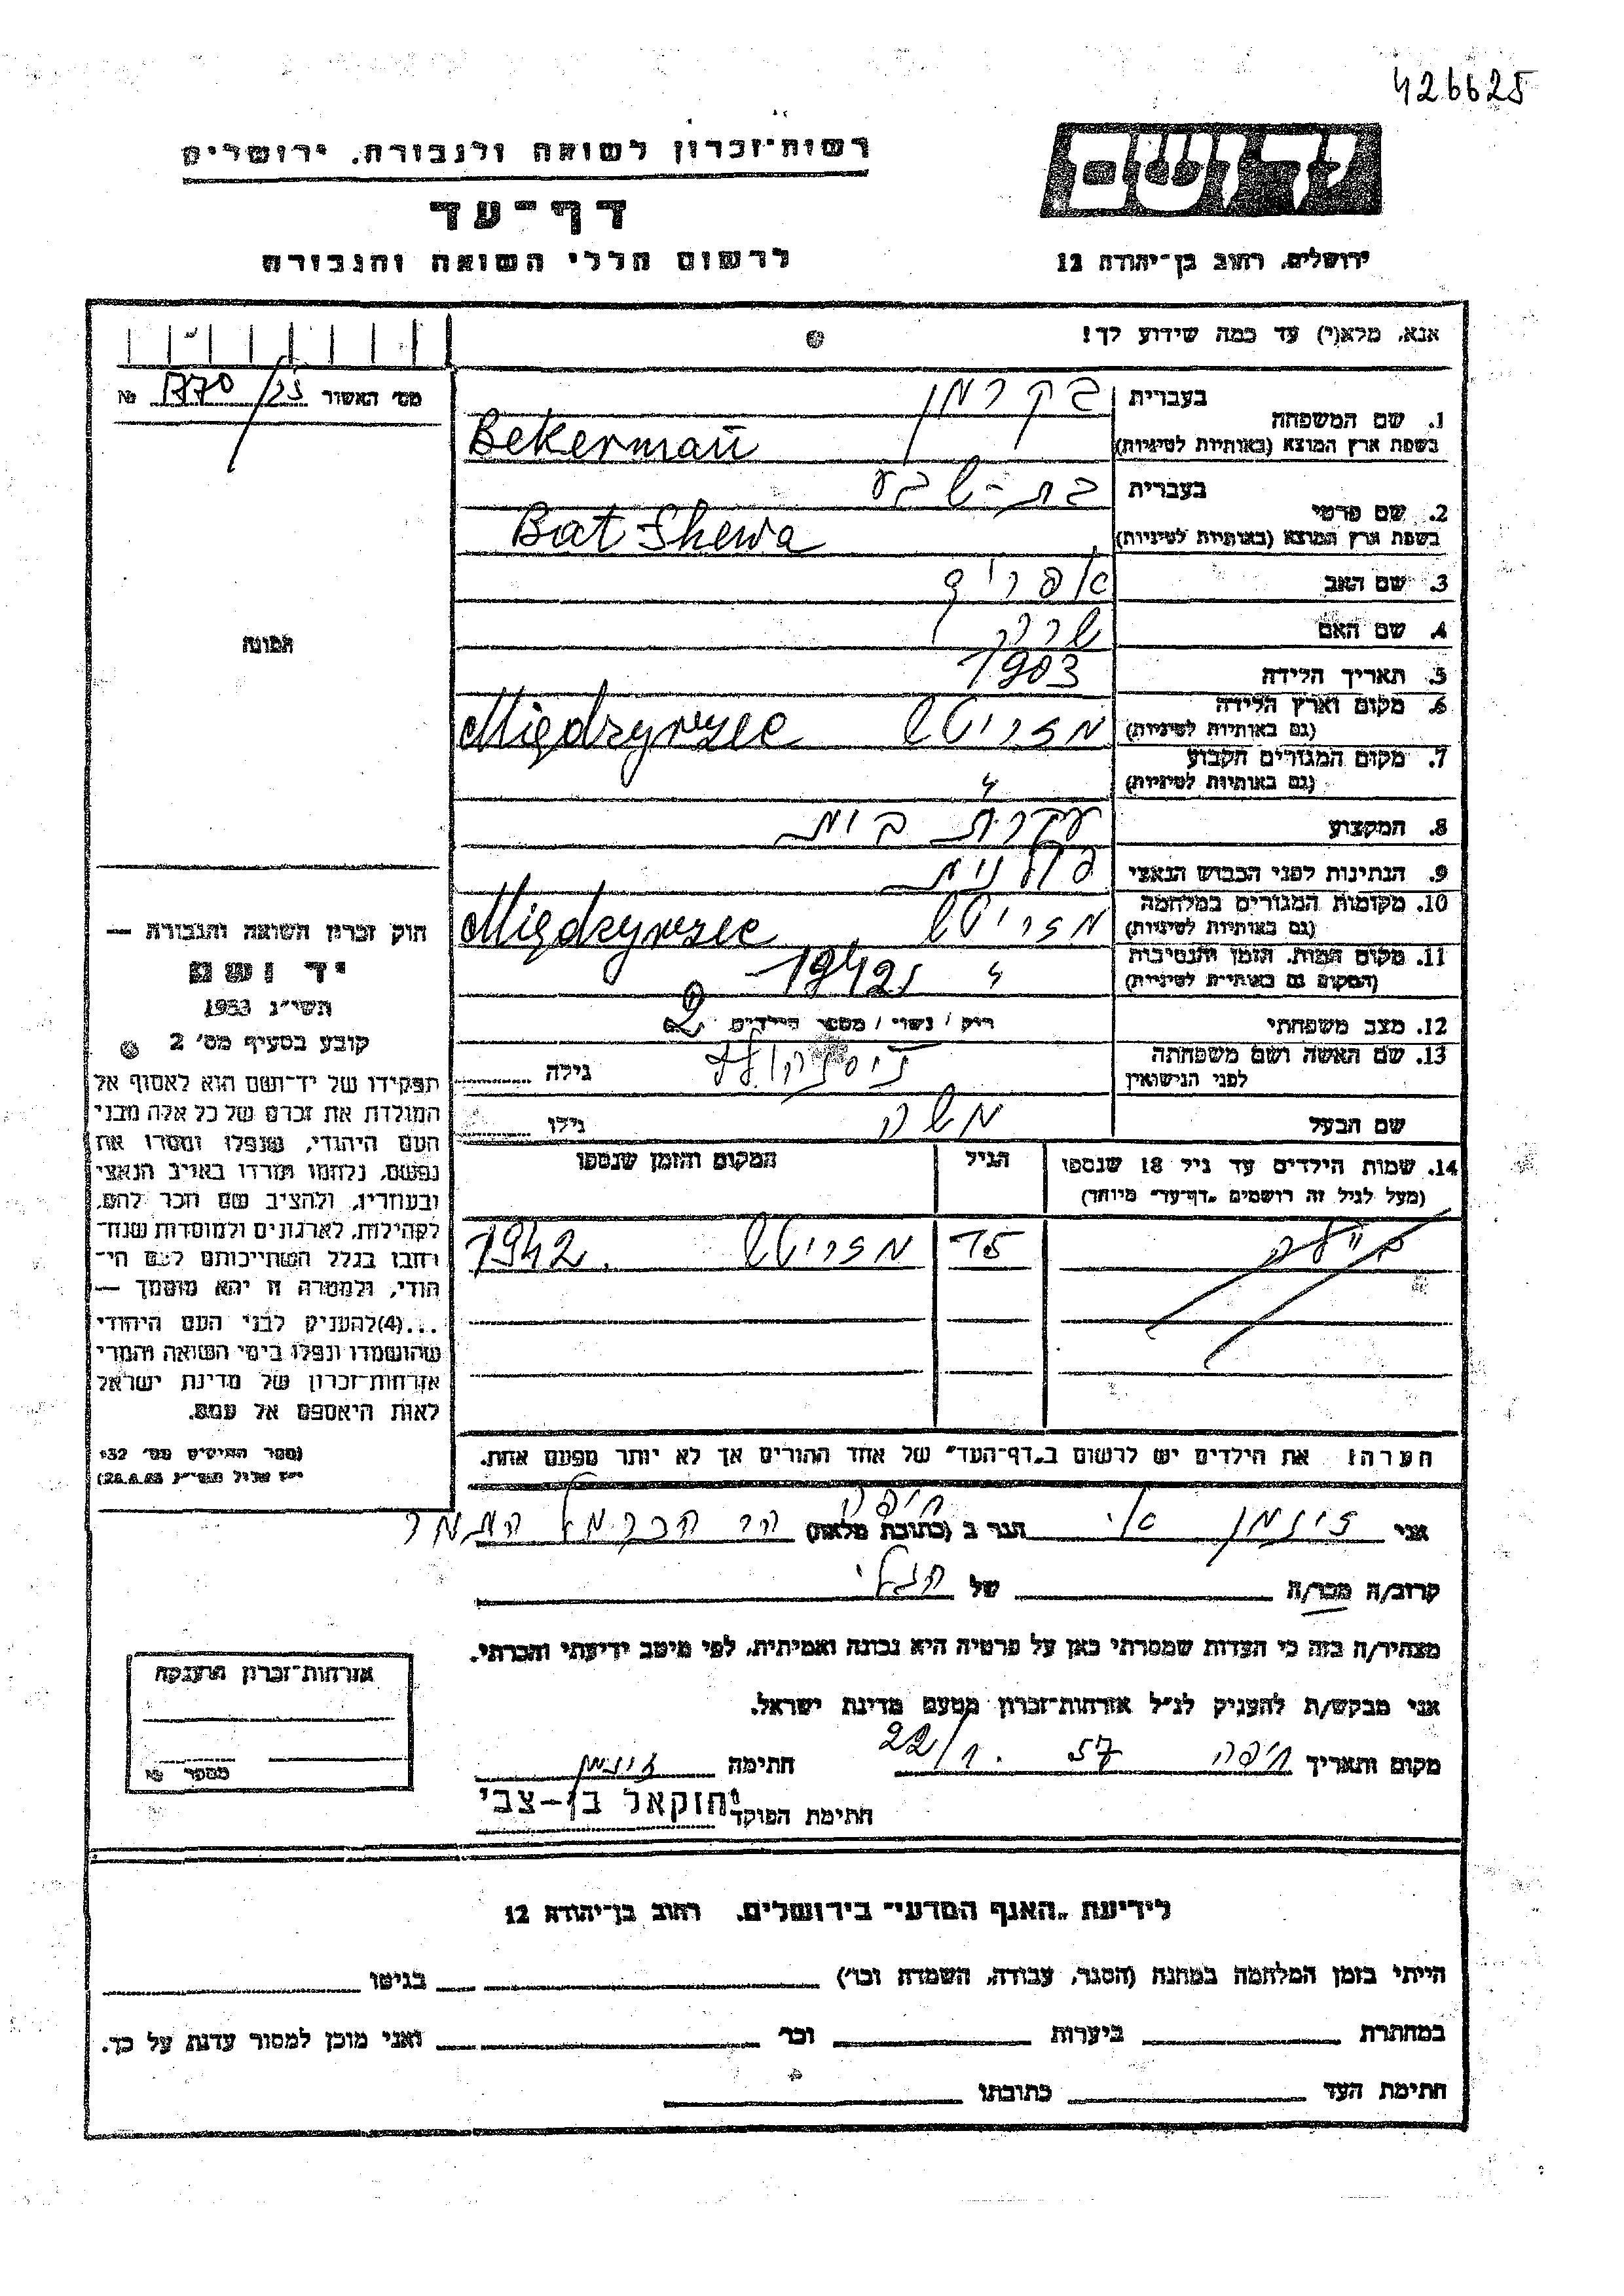 426625
רשות־זכרון לשואה ולגבורה, ירושלים
דף־עד
לרשום חללי השואה והגבורה
ירושלים, רחוב בן־יהודה 12
אנא, מלא(י) עד כמה שידוע לך!
מס׳ האשור № 1770
1. שם המשפחה בעברית בקרמן
בשפת ארץ המוצא (באותיות לטיניות) Bekerman
2. שם פרטי בעברית בת-שבע
בשפת ארץ המוצא (באותיות לטיניות) Bat Shewa
3. שם האב
4. שם האם שרה
5. תאריך הלידה 1903
6. מקום וארץ הלידה (גם באותיות לטיניות) מזריטש Międzyrzec
7. מקום המגורים הקבוע (גם באותיות לטיניות) "
8. המקצוע עקרת בית
9. הנתינות לפני הכבוש הנאצי פולנית
10. מקומות המגורים במלחמה (גם באותיות לטיניות) מזריטש Międzyrzec
11. מקום המות, הזמן והנסיבות (המקום גם באותיות לטיניות) " 1942
12. מצב משפחתי רוק / נשוי / מספר הילדים 2
13. שם האשה ושם משפחתה לפני הנישואין גילה
שם הבעל משה גילו
14. שמות הילדים עד גיל 18 שנספו
(מעל לגיל זה רושמים „דף־עד״ מיוחד)
הגיל
המקום והזמן שנספו
ביילה 15 מזריטש 1942
הערה: את הילדים יש לרשום ב„דף־העד״ של אחד ההורים אך לא יותר מפעם אחת.
תמונה
חוק זכרון השואה והגבורה —
יד ושם
תשי״ג 1953
קובע בסעיף מס׳ 2
תפקידו של יד־ושם הוא לאסוף אל
המולדת את זכרם של כל אלה מבני
העם היהודי, שנפלו ומסרו את
נפשם, נלחמו ומרדו באויב הנאצי
ובעוזריו, ולהציב שם וזכר להם,
לקהילות, לארגונים ולמוסדות שנח־
רחבו בגלל השתייכותם לעם הי־
הודי, ולמטרה זו יהא מוסמך —
...(4)להעניק לבני העם היהודי
שהושמדו ונפלו בימי השואה והמרי
אזרחות־זכרון של מדינת ישראל
לאות היאספם אל עמם.
(ספר החוקים מס׳ 132
אני זיגמן הגר ב (כתובת מלאה) חיפה הר הכרמל
קרוב/ה מכר/ה של
מצהיר/ה בזה כי העדות שמסרתי כאן על פרטיה היא נכונה ואמיתית, לפי מיטב ידיעתי והכרתי.
אני מבקש/ת להעניק לנ״ל אזרחות־זכרון מטעם מדינת ישראל.
מקום ותאריך חיפה 22/1. 57 חתימה זיגמן
חתימת הפוקד יחזקאל בן-צבי
אזרחות־זכרון הוענקה
מספר №
לידיעת „האגף המדעי״ בירושלים, רחוב בן־יהודה 12
הייתי בזמן המלחמה במחנה (הסגר, עבודה, השמדה וכו׳) בגיטו
במחתרת ביערות וכו׳ ואני מוכן למסור עדות על כך.
חתימת העד כתובתו